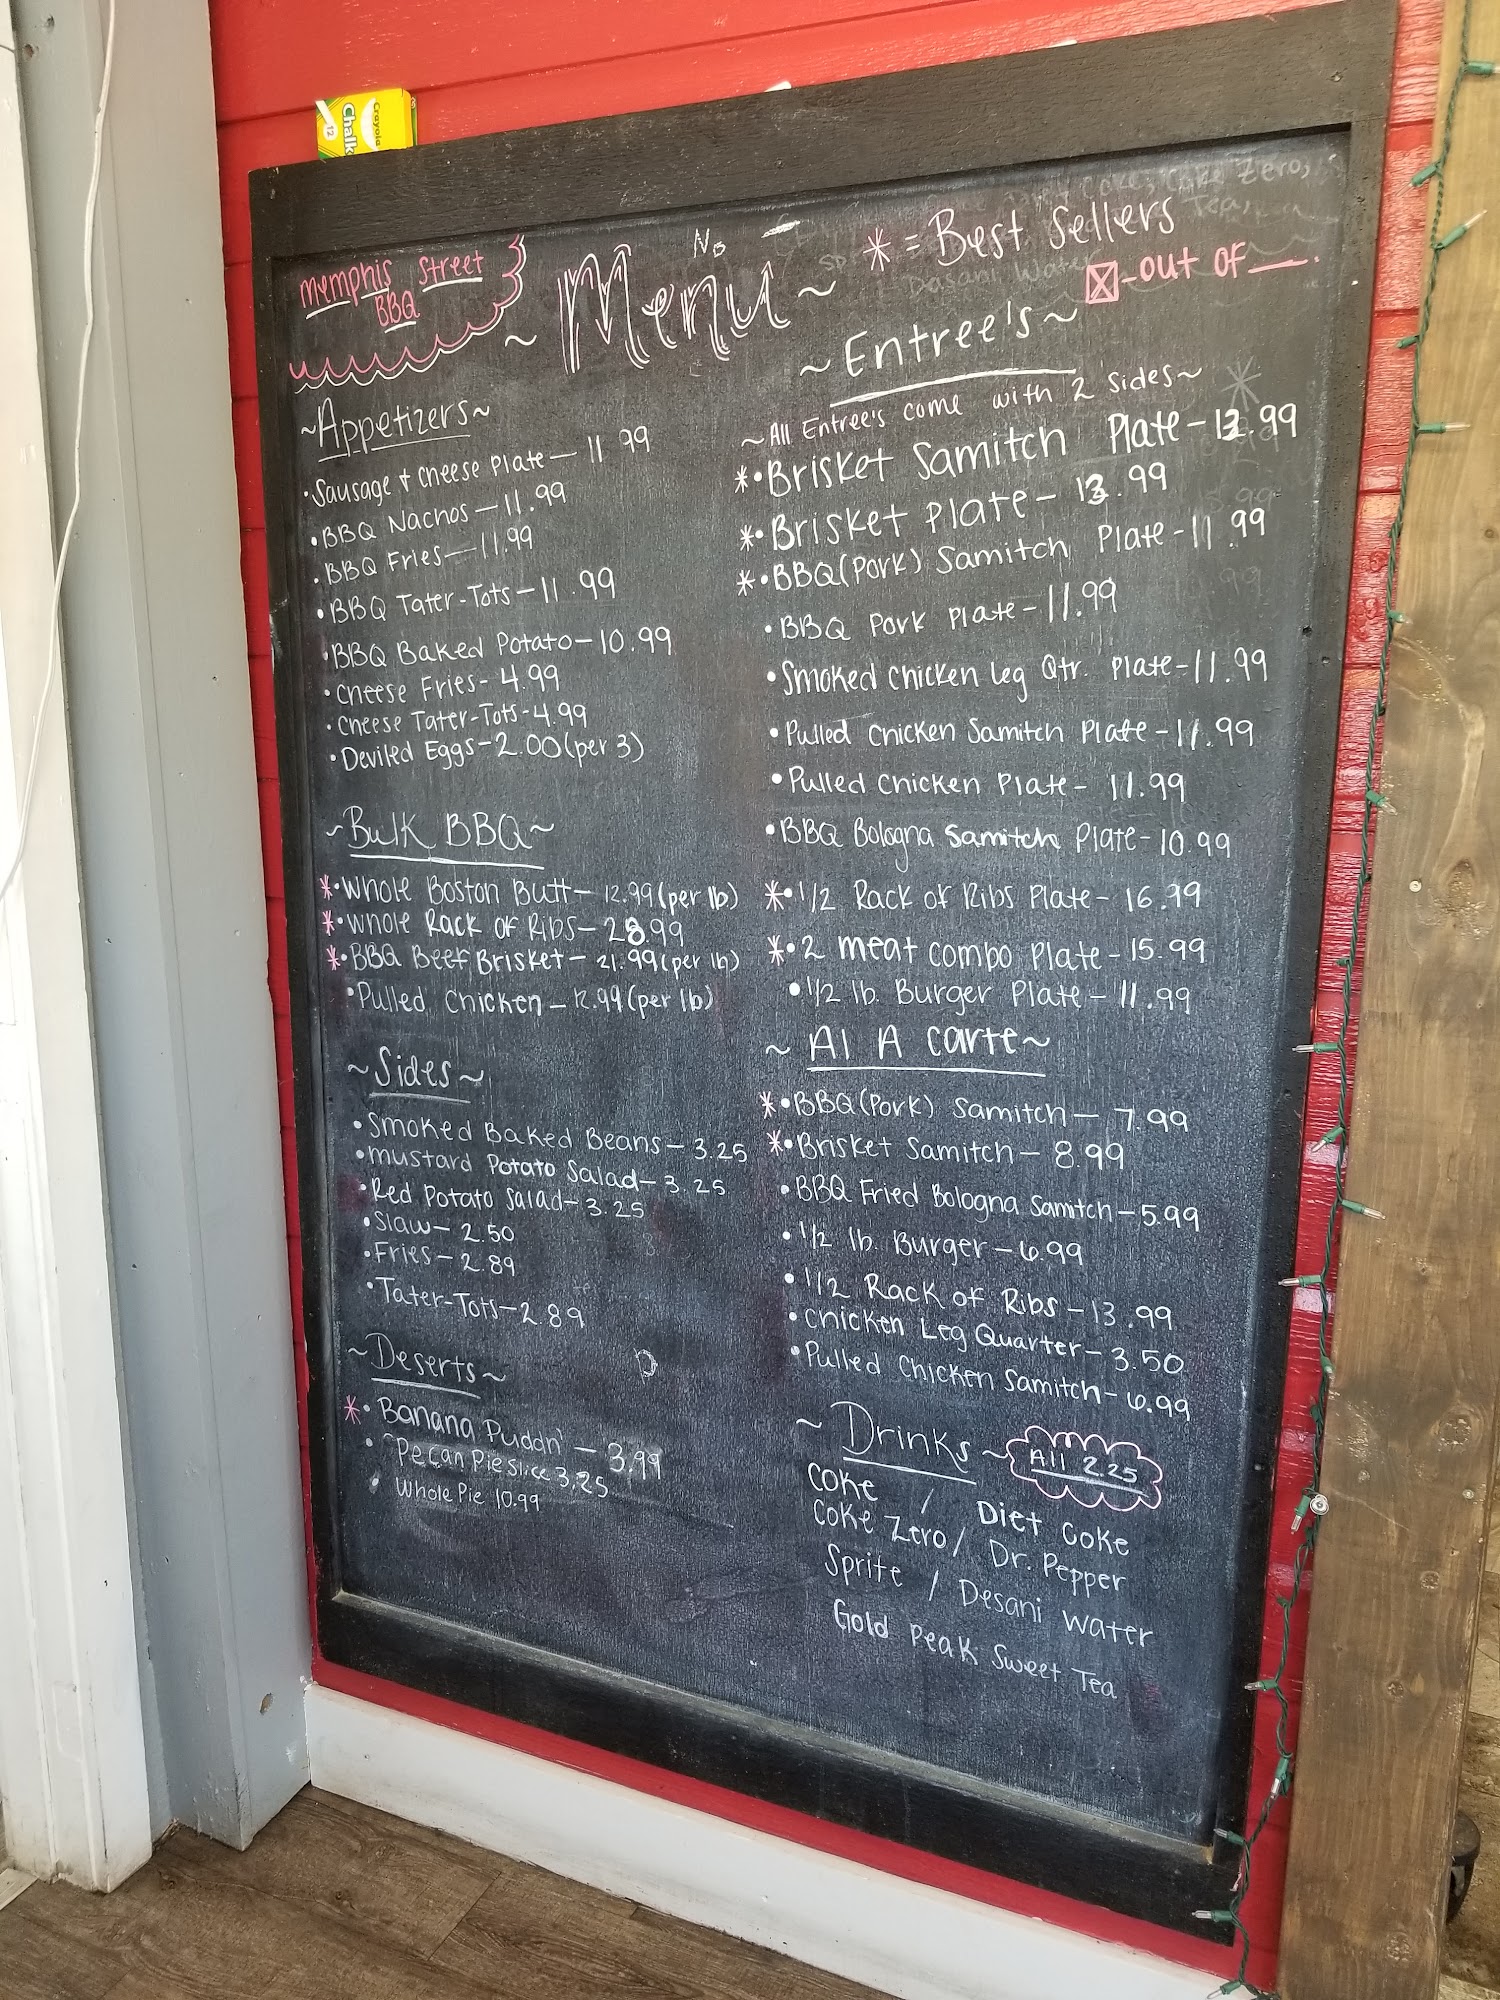 Crayola
Chalk
12
Memphis Street
BBQ
No
~ Menu ~
* = Best Sellers
☒ - out of ___.
~Appetizers~
• Sausage + Cheese Plate — 11.99
• BBQ Nachos — 11.99
• BBQ Fries — 11.99
• BBQ Tater-Tots — 11.99
• BBQ Baked Potato — 10.99
• Cheese Fries - 4.99
• Cheese Tater-Tots - 4.99
• Deviled Eggs - 2.00 (per 3)
~Bulk BBQ~
* • Whole Boston Butt — 12.99 (per lb)
* • Whole Rack of Ribs — 28.99
* • BBQ Beef Brisket — 21.99 (per lb)
• Pulled Chicken — 12.99 (per lb)
~Sides~
• Smoked Baked Beans — 3.25
• Mustard Potato Salad — 3.25
• Red Potato Salad — 3.25
• Slaw — 2.50
• Fries — 2.89
• Tater-Tots — 2.89
~Deserts~
* • Banana Puddn' — 3.99
• Pecan Pie slice 3.25
• Whole Pie 10.99
~Entree's~
~All Entree's come with 2 sides~
* • Brisket Samitch Plate - 13.99
* • Brisket Plate - 13.99
* • BBQ (Pork) Samitch Plate - 11.99
• BBQ Pork Plate - 11.99
• Smoked Chicken Leg Qtr. Plate - 11.99
• Pulled Chicken Samitch Plate - 11.99
• Pulled Chicken Plate - 11.99
• BBQ Bologna Samitch Plate - 10.99
* • 1/2 Rack of Ribs Plate - 16.99
* • 2 meat combo Plate - 15.99
• 1/2 lb. Burger Plate - 11.99
~ Al A carte~
* • BBQ (Pork) Samitch — 7.99
* • Brisket Samitch — 8.99
• BBQ Fried Bologna Samitch — 5.99
• 1/2 lb. Burger — 6.99
• 1/2 Rack of Ribs — 13.99
• Chicken Leg Quarter — 3.50
• Pulled Chicken Samitch - 6.99
~ Drinks ~ All 2.25
Coke / Diet Coke
Coke Zero / Dr. Pepper
Sprite / Desani Water
Gold Peak Sweet Tea